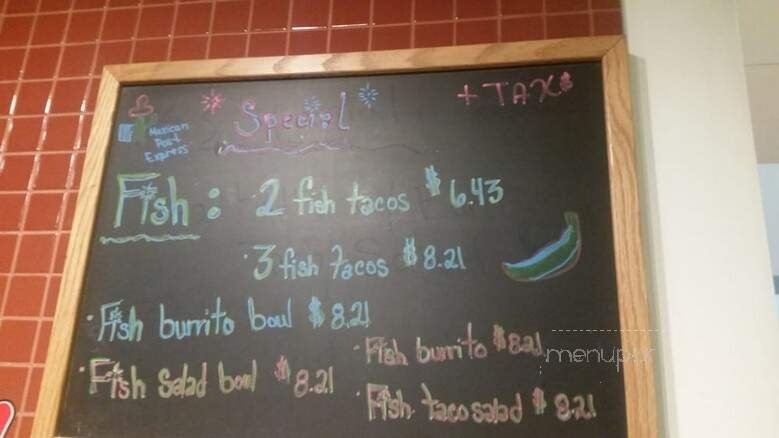 + TAX$
Special
Mexican
Post
Express
Fish : 2 fish tacos $6.43
· 3 fish tacos $8.21
· Fish burrito boul $8.21
· Fish burrito $8.21
· Fish Salad bowl $8.21
· Fish taco salad $8.21
menupix